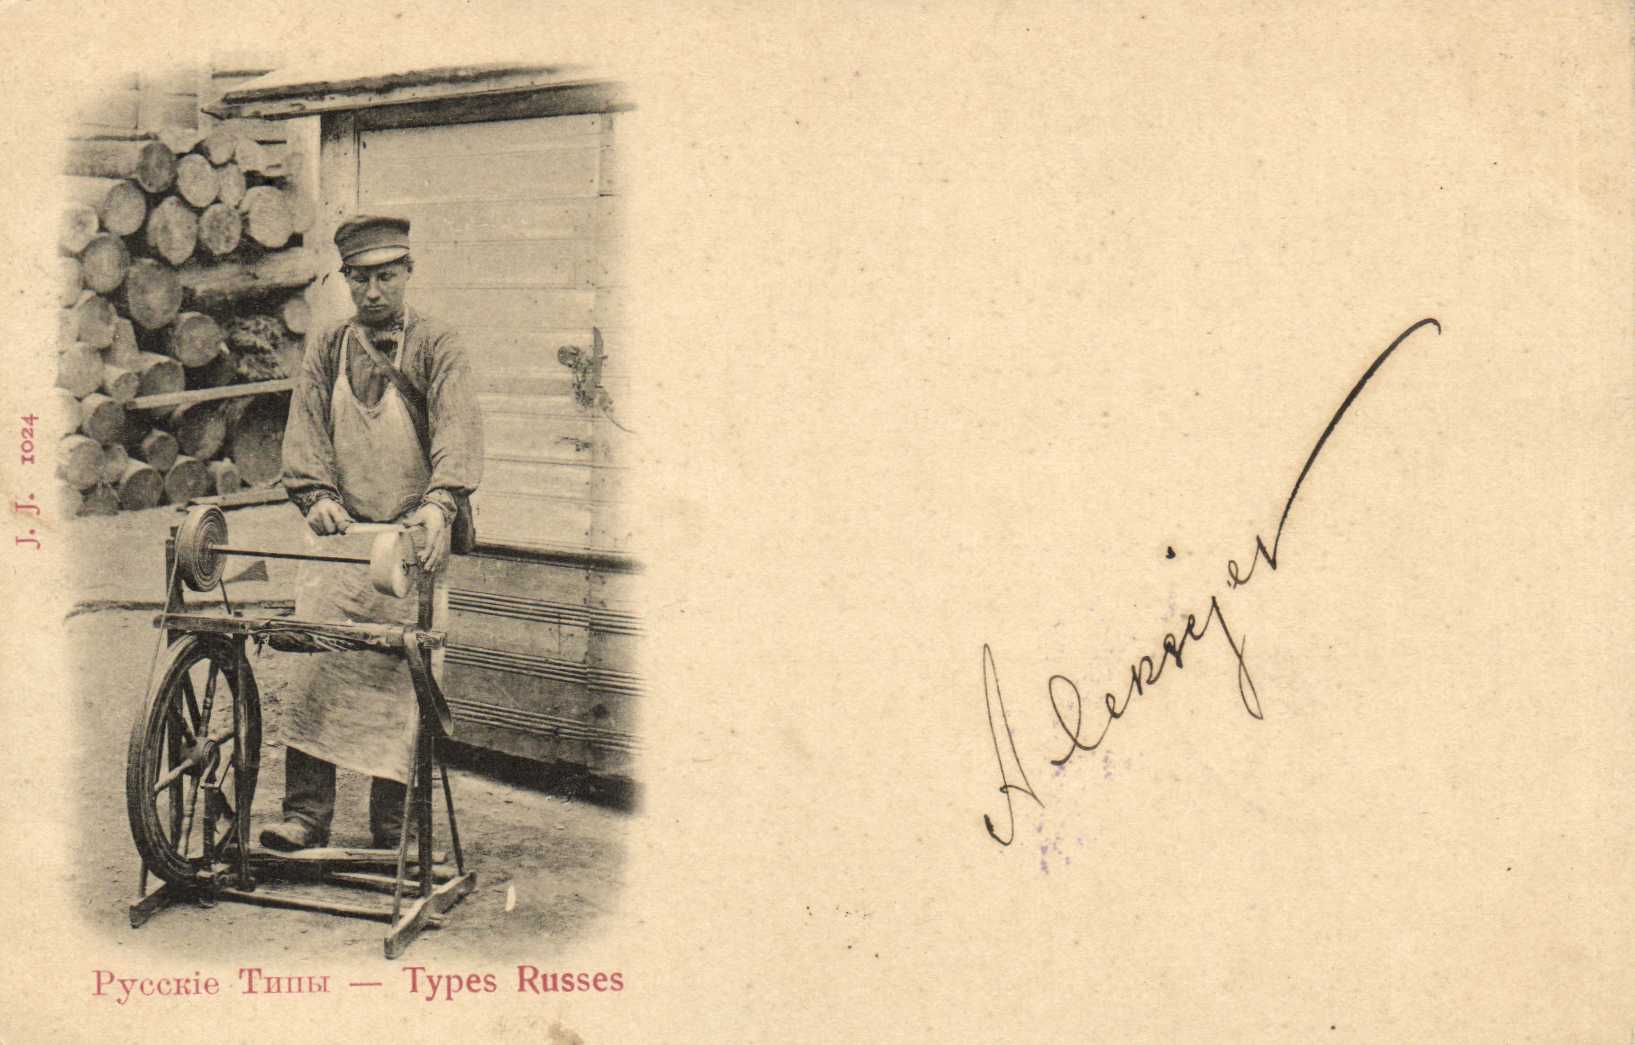 J. J. 1024
Aleksejev
Русскіе Типы — Types Russes